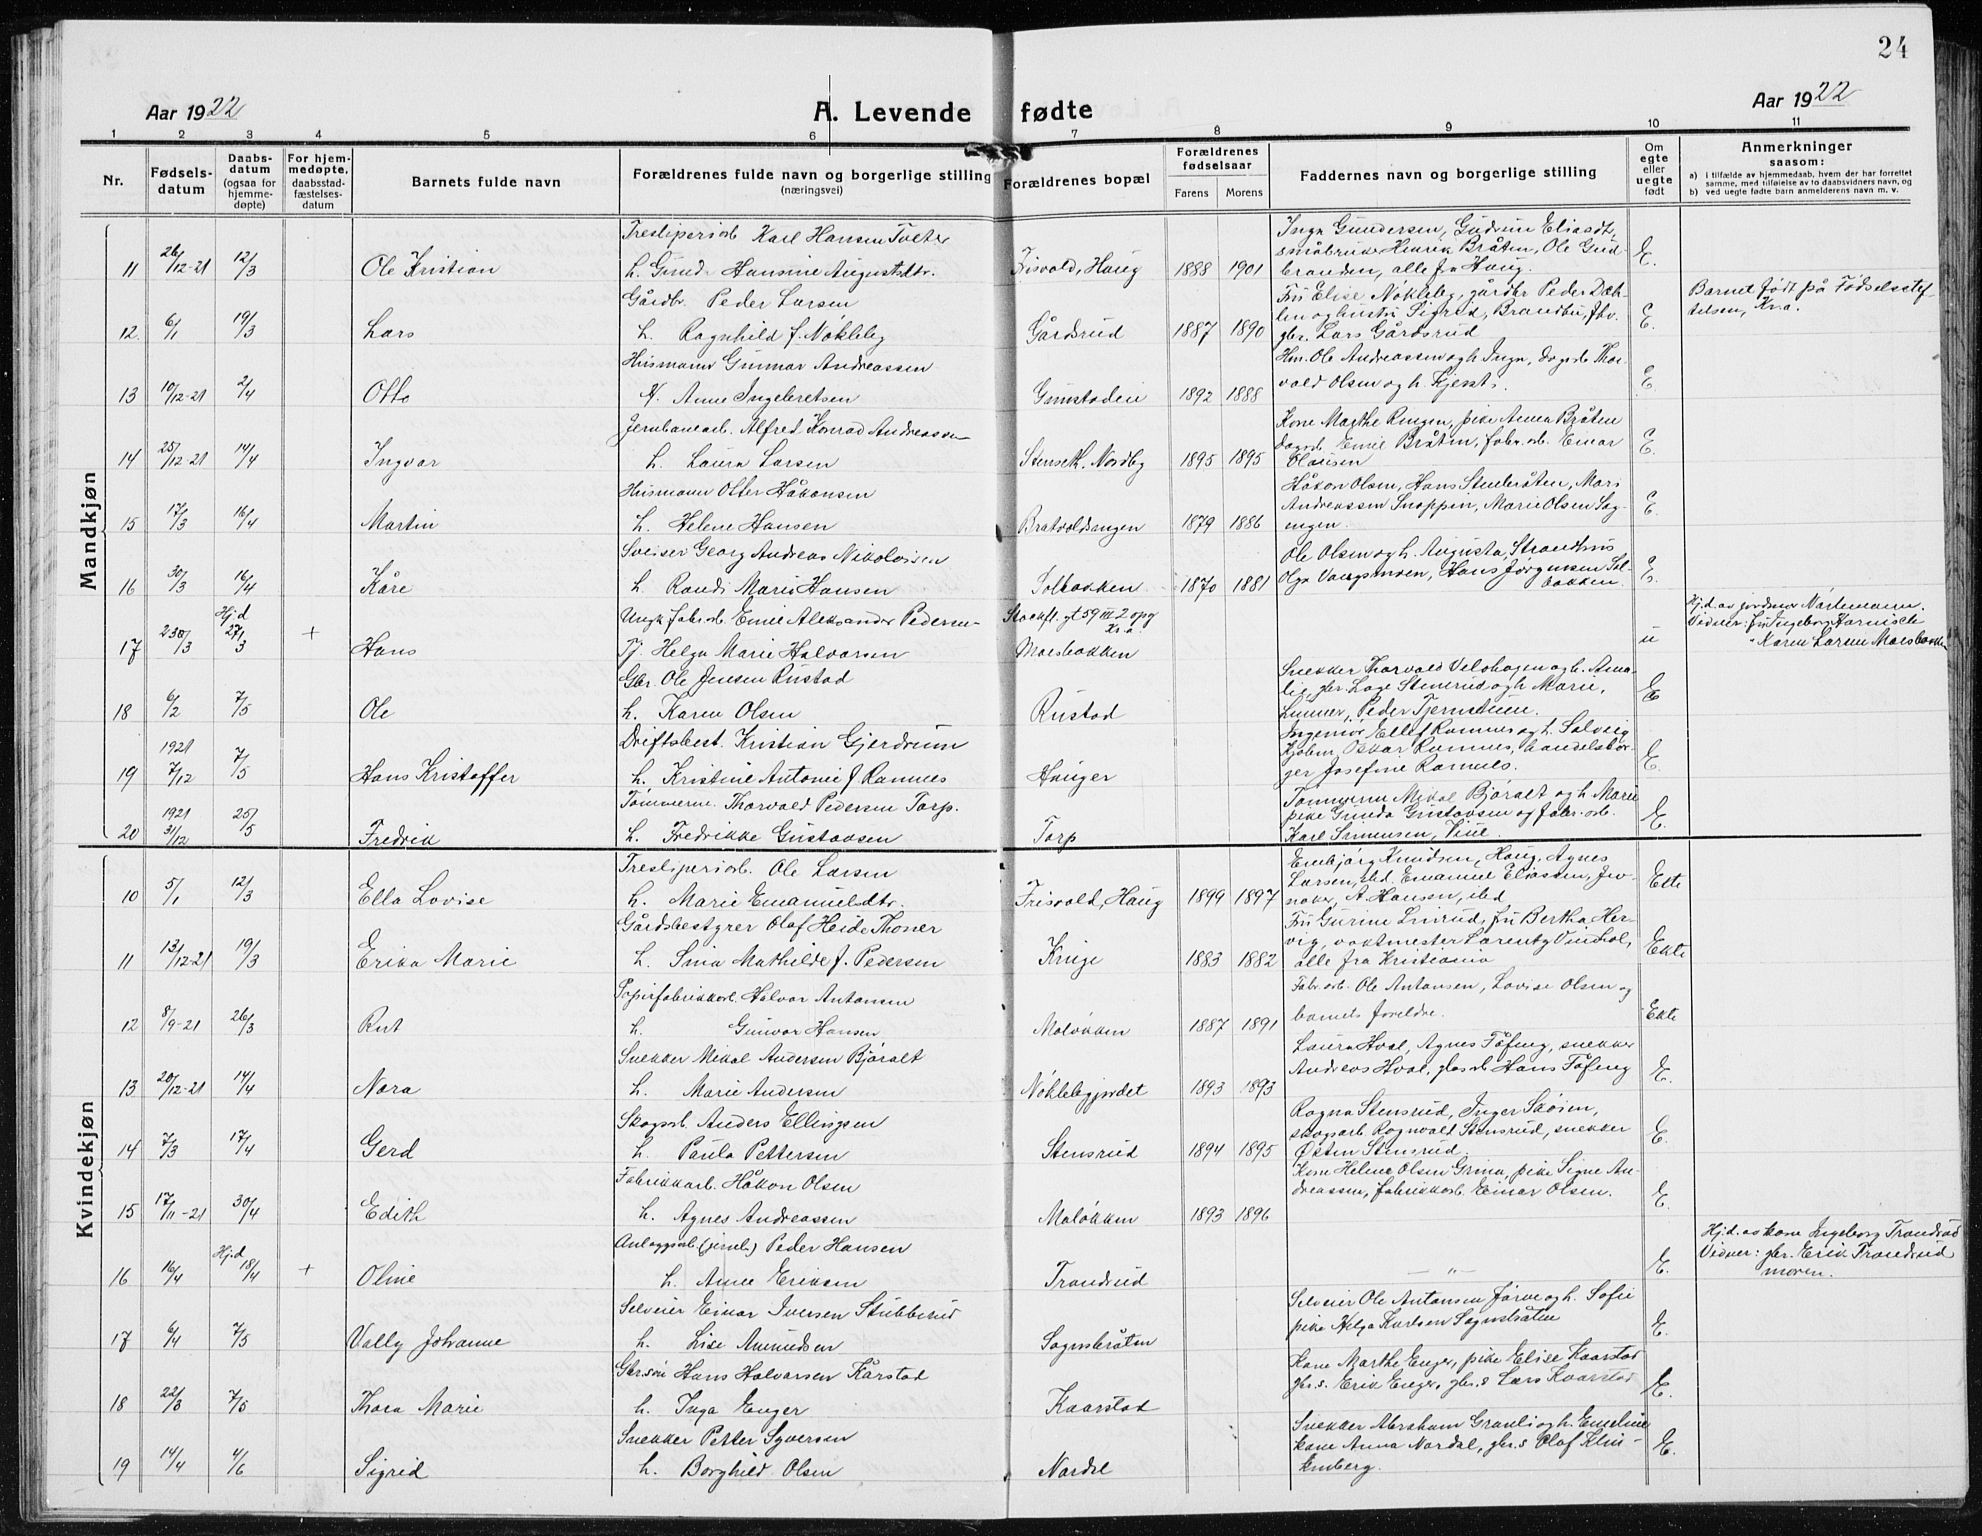 24
Aar 1922
A. Levende fødte
Aar 1922
1 2 3 4 5 6 7 8 9 10 11
Nr.
Fødselsdatum
Daabsdatum (ogsaa for hjemmedøpte)
For hjemmedøpte, daabsstadfæstelsesdatum
Barnets fulde navn
Forældrenes fulde navn og borgerlige stilling (næringsvei)
Forældrenes bopæl
Forældrenes fødselsaar
Farens Morens
Faddernes navn og borgerlige stilling
Om egte eller uegte født
Anmerkninger saasom:
a) i tilfælde av hjemmedaab, hvem der har forrettet samme, med tilføielse av to daabsvidners navn, og
b) ved uegte fødte barn anmelderens navn m. v.
Mandkjøn
Tresliperiarb. Karl Hansen Tveter
11 26/12-21 12/3 Ole Kristian h. Gund. Hansine Augustsdtr. Frisvold, Haug 1888 1901 E.
Inga Gundersen, Gudrun Eliasdt,
småbruker Henrik Bråten, Ole Gud-
branden, alle fra Haug.
Gårdbr. Peder Larsen
12. 6/1 19/3 Lars h. Ragnhild f. Nøkleby Gårdsrud 1887 1890 E.
Fru Elise Nøkleby, gårdbr Peder Dæh-
len og hustru Sigrid, Brandbu, fhv.
gbr. Lars Gårdsrud
Barnet født på Fødselsstif-
telsen, Kra.
Husmann Gunnar Andreassen
13 10/12-21 2/4 Otto h. Anne Ingebretsen Gunstadeie 1892 1888 E
Hm. Ole Andreassen og h. Inga, dagarb. Thor-
vald Olsen og h. Kjersti.
Jernbanearb. Alfred Konrad Andreassen
14 25/12-21 14/4 Ingvar h. Laura Larsen Stenseth, Nordby 1895 1895 E.
Kone Marthe Ringen, pike Anna Bråten
dagarb. Emil Bråten, fabr.arb. Einar
Olausen
Husmann Otter Håkonsen
15 17/3 16/4 Martin h. Helene Hansen Bratvoldsengen 1879 1886 E.
Håkon Olsen, Hans Stubråten, Mari
Andreassen Snoppen, Marie Olsen Sag-
engen.
Sveiser Georg Andreas Nikolaisen
16 30/3 16/4 Kåre h. Randi Marie Hansen Solbakken 1870 1881 E.
Ole Olsen og h. Augusta, Strandhus
Olga Vangsmoen, Hans Jørgensen Sol-
bakken.
Ungk. fabr.arb. Emil Aleksander Pedersen Stockfl. gt 59 III 2 opg Kra.
17 30/3 Hj.d 27/3 + Hans Pj. Helga Marie Halvorsen Moesbakken u
Hj.d. av jordmor Nårtemann.
Vidner: fru Ingeborg Harnisch
" Karen Larsen Moesbakken
Gbr. Ole Jensen Rustad
18 6/2 7/5 Ole h. Karen Olsen Rustad E
Snekker Thorvald Velohagen og h. Ama-
lie, gbr. Lage Stenerud og h Marie,
Lunner, Peder Tjernstuen.
Driftsbest. Kristian Gjerdrum
19 1921 7/12 7/5 Hans Kristoffer h. Kristine Antonie f. Ramnes Hauger E.
Ingeniør Ellef Ramnes og h. Solveig
Kjøbm. Oskar Ramnes, handelsbor-
ger Josefine Ramnes.
Tømmerm. Thorvald Pedersen Torp.
20 1921 31/12 25/5 Fredrik h. Fredrikke Gustavsen Torp E.
Tømmerm Mikal Bjøralt og h Marie
pike Gunda Gustavsen og fabr.arb.
Karl Simensen, Viul.
Kvindekjøn
Tresliperiarb. Ole Larsen
10 5/1 12/3 Ella Lovise h. Marie Emanuelsdtr. Frisvold, Haug 1899 1897 Ekte
Embjørg Knudsen, Haug, Agnes
Larsen, ibd. Emanuel Eliassen, Jev-
naker, A. Hansen, ibid
Gårdsbestyrer Olaf Heide Thoner
11 13/12-21 19/3 Erika Marie h. Sina Mathilde f. Pedersen Kinge 1883 1882 Ekte
Fru Gurine Linrud, fru Bertha Her-
vig, vaktmester Larentz Vinshol,
alle fra Kristiania
Papirfabrikkarb. Halvor Antonsen
12 8/9-21 26/3 Rut h. Gunvor Hansen Moløkken 1887 1891 Ekte
Fabr.arb. Ole Antonsen, Lovise Olsen og
barnets foreldre.
Snekker Mikal Andersen Bjøralt
13 20/12-21 14/4 Nora h. Marie Andersen Nøklebygjordet 1893 1893 E.
Laura Hval, Agnes Tåfeng, snekker
Andreas Hval, glasarb Hans Tåfeng
Skogsarb. Anders Ellingsen
14 7/3 17/4 Gerd h. Paula Pettersen Stensrud 1894 1895 E.
Ragna Stensrud, Inger Skøien,
skogsarb. Ragnvald Stensrud, snekker
Østen Stensrud.
Fabrikkarb. Håkon Olsen
15 17/11-21 30/4 Edith h. Agnes Andreassen Moløkken 1893 1896 E.
Kone Helene Olsen Grina, pike Signe An-
dreassen, fabrikkarb. Einar Olsen.
Anlæggsarb. (jernb.) Peder Hansen
16 16/4 Hj.d 18/4 + Oline h. Anne Eriksen Trandrud — „ — E.
Hj.d. av kone Ingeborg Trandrud
Vidner: gbr. Erik Trandrud
moren.
Selveier Einar Iversen Stubberud
17 6/4 7/5 Vally Johanne h. Lise Amundsen Sognsbråten E.
Selveier Ole Antonsen Jørve og h. Sofie
pike Helga Karlsen Sognsbråten
Gbr.søn Hans Halvorsen Kårstad
18 22/3 7/5 Thora Marie h. Inga Enger Kaarstad E.
Kone Marthe Enger, pike Elise Kaarstad
gbr.s. Erik Enger, gbr.s Lars Kaarstad
Snekker Petter Syversen
19 14/4 4/6 Sigrid h. Borghild Olsen Nordal E.
Snekker Abraham Granli og h. Emeline
kone Anna Nordal, gbr.s Olaf Klin-
kenberg.